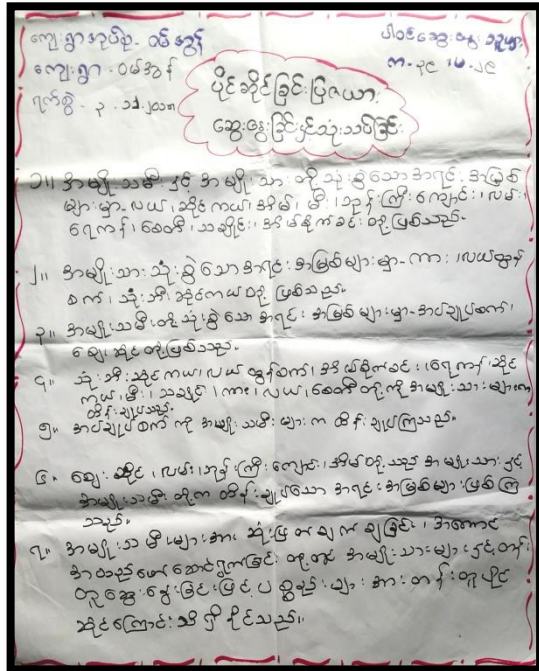 ကျေးရွာအုပ်စု - ဝမ်အွန်
ပါဝင်ဆွေးနွေးသူများ
ကျေးရွာ - ဝမ်အွန်
ကျ - ၃၄ ၊ မ - ၂၄
ပိုင်ဆိုင်ခြင်းပြဇယား
ဆွေးနွေးခြင်းနှင့်သုံးသပ်ခြင်း
၁။ အမျိုးသမီးနှင့် အမျိုးသားတို့သုံးစွဲသောအရင်းအမြစ်
များမှာ-လယ်၊ဆိုင်ကယ်၊အိမ်၊မီး၊ဘုန်းကြီးကျောင်း၊လမ်း၊
ရေကန်၊စေတီ၊သချိုင်း၊အိမ်စိုက်ခင်းတို့ဖြစ်သည်။
၂။ အမျိုးသားသုံးစွဲသောအရင်းအမြစ်များမှာ-ကား၊လယ်ထွန်
စက်၊သုံးဘီးဆိုင်ကယ်တို့ဖြစ်သည်။
၃။ အမျိုးသမီးတို့သုံးစွဲသောအရင်းအမြစ်များမှာ-အပ်ချုပ်စက်၊
ဈေးဆိုင်တို့ဖြစ်သည်။
၄။ သုံးဘီးဆိုင်ကယ်၊လယ်ထွန်စက်၊အိမ်စိုက်ခင်း၊ရေကန်၊ဆိုင်
ကယ်၊မီး၊သချိုင်း၊ကား၊လယ်၊စေတီတို့ကိုအမျိုးသားများက
ထိန်းချုပ်သည်။
၅။ အပ်ချုပ်စက်ကိုအမျိုးသမီးများကထိန်းချုပ်ကြသည်။
၆။ ဈေးဆိုင်၊လမ်း၊ဘုန်းကြီးကျောင်း၊အိမ်တို့သည်အမျိုးသားနှင့်
အမျိုးသမီးတို့ကထိန်းချုပ်သောအရင်းအမြစ်များဖြစ်ကြ
သည်။
၇။ အမျိုးသမီးများအားဆုံးဖြတ်ချက်ချခြင်း၊အကောင်
အထည်ဖော်ဆောင်ရွက်ခြင်းတို့တွင်အမျိုးသားများနှင့်တန်း
တူဆွေးနွေးခြင်းဖြင့်ပစ္စည်းများအားတန်းတူပိုင်
ဆိုင်ကြောင်းသိရှိနိုင်သည်။